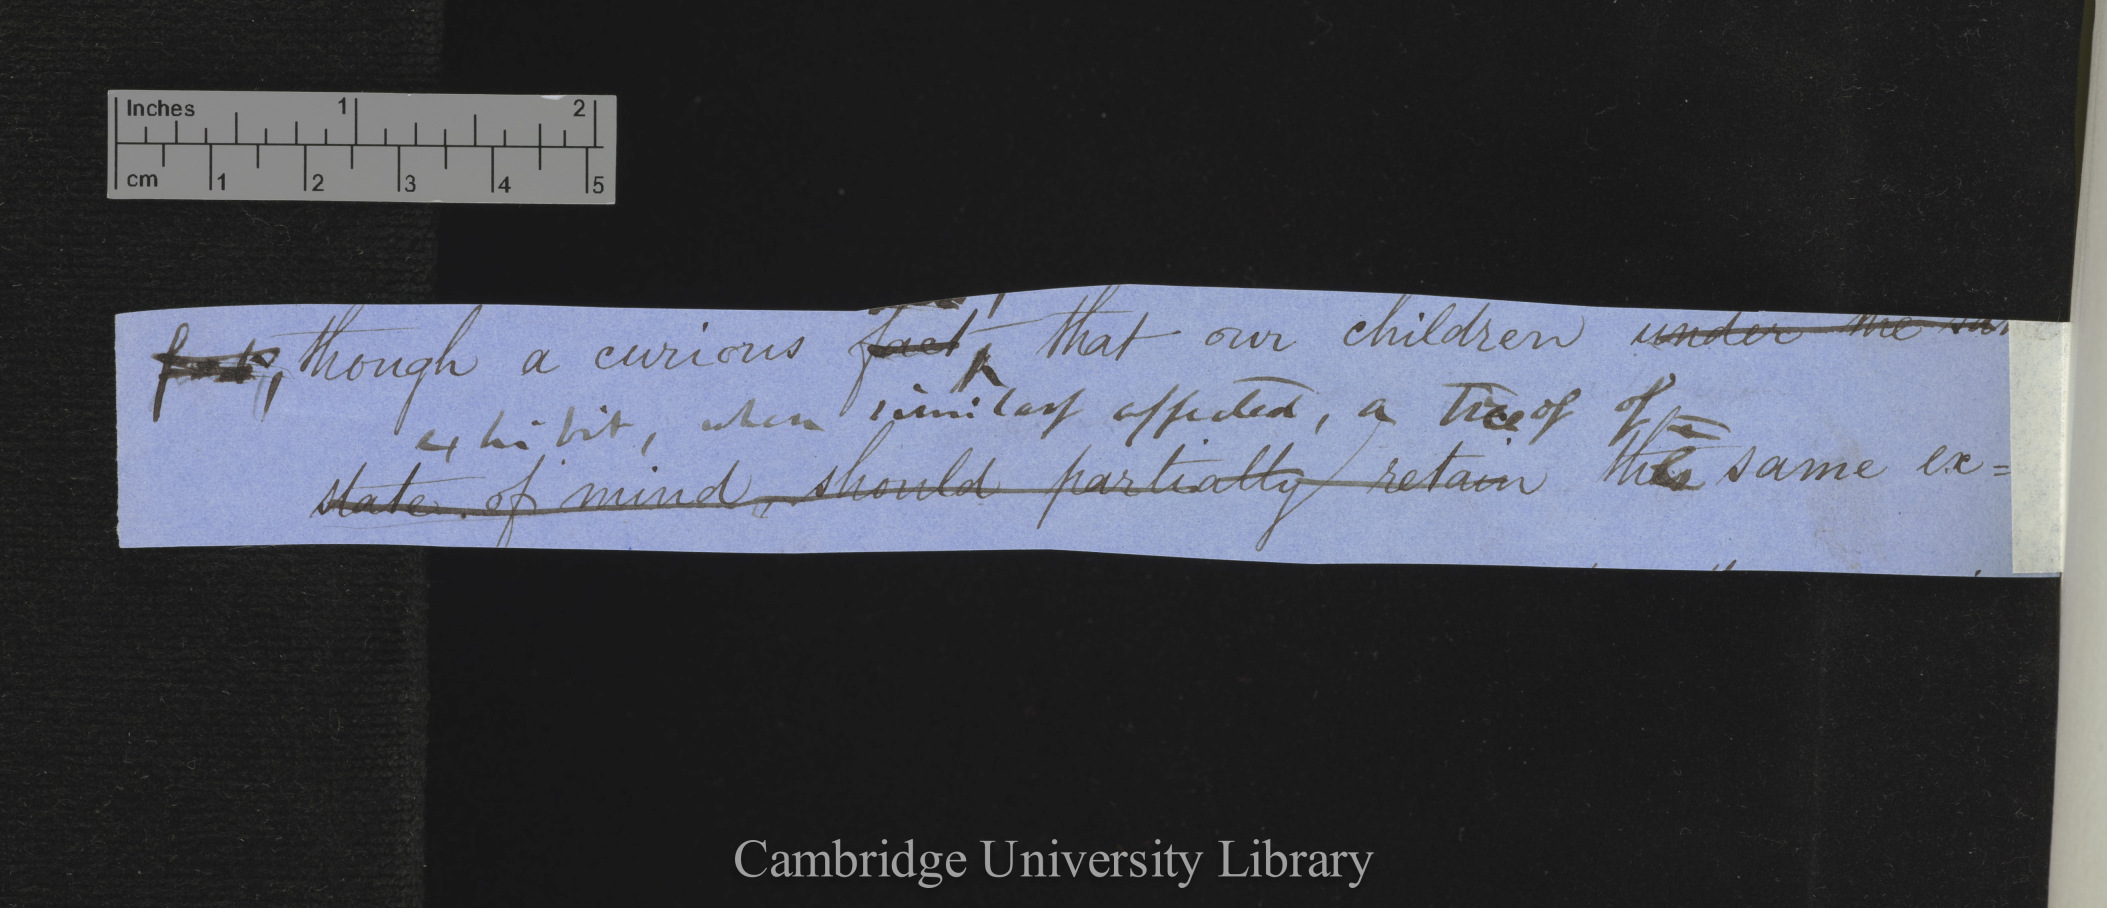 Inches 1 2
cm 1 2 3 4 5
fact, though a curious fact, that our children under the sa
exhibit, when similarly affected, a trace of
state of mind, should partially retain the same ex=
Cambridge University Library